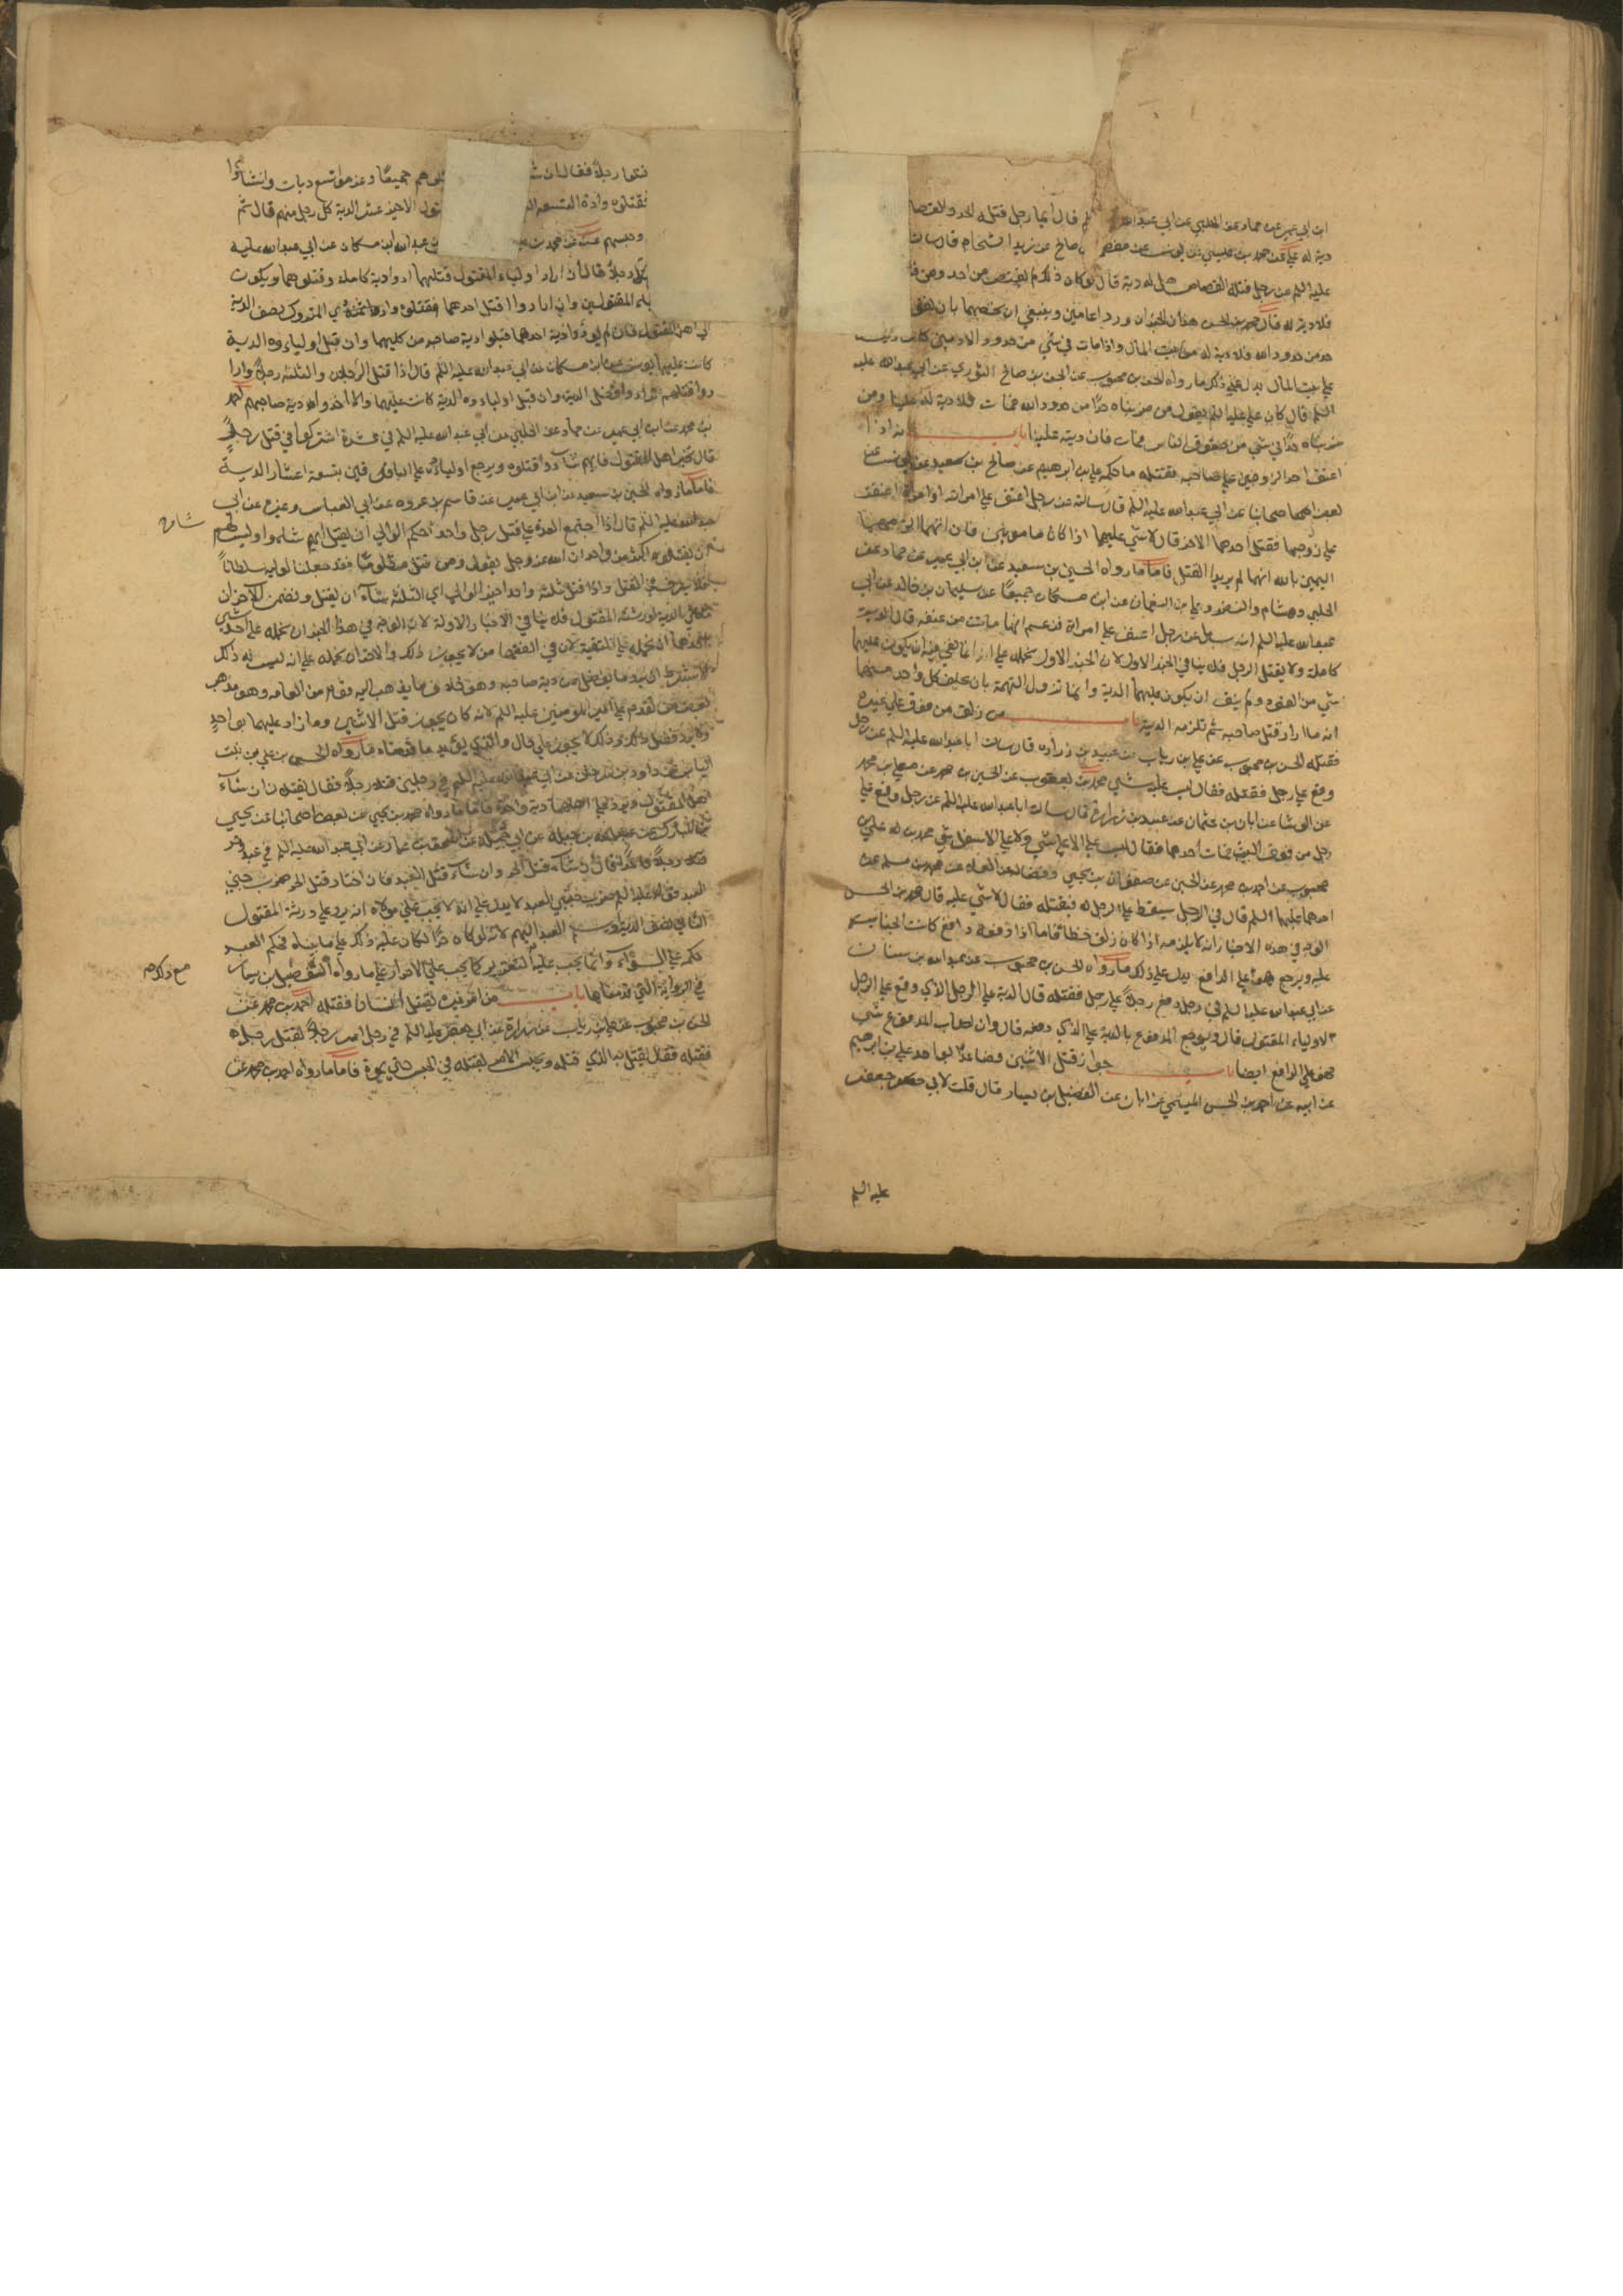 ابن ابي عمير عن حماد عن الحلبي عن ابي عبدالله قال ايما رجل قتله الحد والقصا
دية له علي عن محمد بن عيسي عن يونس عن مفضل بن صالح عن زيد الشحام قال سالت
عليه السلم عن رجل قتله القصاص هل له دية قال لو كان ذلك لم يقتص من احد ومن
فلا دية له قال محمد بن الحسن هذان الخبران وردا عامين وينبغي ان نخصهما بان نقول
حد من حدود الله فلا دية له من بيت المال واذا مات في شي من حدود الادميين كانت ديته
علي بيت المال يدل علي ذلك ما رواه الحسن بن محبوب عن الحسن بن صالح الثوري عن ابي عبدالله عليه
السلم قال كان علي عليه السلم يقول من ضربناه حدا من حدود الله فمات فلا دية له علينا ومن
ضربناه حدا في شي من حقوق الناس فمات فان ديته علينا باب اذا
اعنف احد الزوجين علي صاحبه فقتله ما حكمه علي بن ابرهيم عن صالح بن سعيد عن يونس عن
بعض اصحابنا عن ابي عبدالله عليه السلم قال سالته عن رجل اعنف علي امراته او امراة اعنفت
علي زوجها فقتل احدهما الاخر قال لا شي عليهما اذا كانا مامونين فان اتهما الزمهما
اليمين بالله انهما لم يريدا القتل فاما ما رواه الحسين بن سعيد عن ابن ابي عمير عن حماد عن
الحلبي وهشام والنضر وعلي بن النعمان عن ابن مسكان جميعا عن سليمان بن خالد عن ابي
عبدالله عليه السلم انه سئل عن رجل اعنف علي امراة فزعم انها ماتت من عنفه قال الدية
كاملة ولا يقتل الرجل فلا ينافي الخبر الاول لان الخبر الاول نحمله علي انه انما نفي فيه ان يكون عليهما
شي من القود ولم ينف ان يكون عليهما الدية وانما تزول التهمة بان يحلف كل واحد منهما
انه ما اراد قتل صاحبه ثم تلزمه الدية باب من زلق من فوق علي غيره
فقتله الحسن بن محبوب عن علي بن رياب عن عبيد بن زرارة قال سالت ابا عبدالله عليه السلم عن رجل
وقع علي رجل فقتله فقال ليس عليه شي محمد بن يعقوب عن الحسين بن محمد عن معلي بن محمد
عن الوشا عن ابان بن عثمان عن عبيد بن زرارة قال سالت ابا عبدالله عليه السلم عن رجل وقع علي
رجل من فوق البيت فمات احدهما فقال ليس علي الاعلي شي ولا علي الاسفل شي محمد بن علي بن
محبوب عن احمد بن محمد عن الحسين عن صفوان بن يحيي وفضالة عن العلاء عن محمد بن مسلم عن
احدهما عليهما السلم قال في الرجل يسقط علي الرجل فيقتله فقال لا شي عليه قال محمد بن الحسن
الوجه في هذه الاخبار انه لا يلزمه اذا كان زلق خطا فاما اذا دفعه دافع كانت الجناية
عليه ويرجع هو علي الدافع يدل علي ذلك ما رواه الحسن بن محبوب عن عبد الله بن سنان
عن ابي عبدالله عليه السلم في رجل دفع رجلا علي رجل فقتله قال الدية علي الرجل الذي وقع علي الرجل
لاولياء المقتول قال ويرجع المدفوع بالدية علي الذي دفعه قال وان اصاب المدفوع شي
فهو علي الدافع ايضا باب جواز قتل الاثنين فصاعدا بواحد علي بن ابرهيم
عن ابيه عن احمد بن الحسن الميثمي عن ابان عن الفضيل بن يسار قال قلت لابي جعفر
عليه السلم
قتلوا رجلا فقال ان شا قتلوهم جميعا وغرموا تسع ديات وان شاوا
فقتلوه وادي التسعة الاخير عشر الدية كل رجل منهم قال ثم
وحبسهم عن محمد بن عن عبدالله ابن مسكان عن ابي عبدالله عليه
قتلا رجلا قال ان اراد اولياء المقتول قتلهما ادوا دية كاملة وقتلوهما ويكون
المقتولين وان ارادوا قتل احدهما فقتلوه وادي المتروك نصف الدية
الي اهل المقتول فان لم يود دية احدهما قبلوا دية صاحبه من كليهما وان قبل اولياوه الدية
كانت عليهما يونس عن ابن مسكان عن ابي عبدالله عليه السلم قال اذا قتل الرجلان والثلثة رجلا وارا
دوا قتلهم ترادوا فضل الدية وان قبل اولياوه الدية كانت عليهما والا اخذوا دية صاحبهم احمد
بن محمد عن ابن ابي عمير عن حماد عن الحلبي عن ابي عبدالله عليه السلم في عشرة اشتركوا في قتل رجل
قال يخير اهل المقتول فايهم شاوا قتلوه ويرجع اولياوه علي الباقين بتسعة اعشار الدية
فاما ما رواه الحسين بن سعيد عن ابن ابي عمير عن قاسم بن عروه عن ابي العباس وغيره عن ابي
عبدالله عليه السلم قال اذا اجتمع العدة علي قتل رجل واحد حكم الوالي ان يقتل ايهم شاوا وليس لهم
ان يقتلوا اكثر من واحد ان الله عز وجل يقول ومن قتل مظلوما فقد جعلنا لوليه سلطانا
فلا يسرف في القتل واذا قتل ثلثة واحدا خير الوالي اي الثلثة شآء ان يقتل ويضمن الآخران
ثلثي الدية لورثة المقتول فلا ينافي الاخبار الاولة لان الوجه في هذا الخبر ان نحمله علي احد شيئين
احدهما ان نحمله علي التقية لان في الفقهاء من لا يجوز ذلك والآخر ان نحمله علي انه ليس له ذلك
الا بشرط ان يرد ما يفضل عن دية صاحبه وهو خلاف ما يذهب اليه قوم من العامه وهو مذهب
بعض من تقدم علي امير المومنين عليه السلم لانه كان يجوز قتل الاثنين وما زاد عليهما بواحد
ولا يرد فضل ذلك وذلك لا يجوز علي حال والذي يوكد ما قدمناه ما رواه الحسن بن علي بن بنت
الياس عن داود بن سرحان عن ابي عبدالله عليه السلم في رجلين قتلا رجلا فقال يقتله ان شآء
اهل المقتول ويرد علي اهلهما دية واحدة فاما ما رواه محمد بن يحيي عن بعض اصحابنا عن يحيي
بن المبارك عن عبدالله بن جبلة عن ابي جميلة عن اسحق بن عمار عن ابي عبدالله عليه السلم في عبد وحر
قتلا رجلا حرا قال ان شآء قتل الحر وان شآء قتل العبد فان اختار قتل الحر ضرب جنبي
العبد فقوله عليه السلم ضرب جنبي العبد لا يدل علي انه لا يجب علي مولاه ان يرد علي ورثة المقتول
الثاني نصف الدية او يسلم العبد اليهم لانه لو كان حرا لكان عليه ذلك علي ما بيناه فحكم العبد
حكمه علي السوآء وانما يجب عليه التعزير كما يجب علي الاحرار علي ما رواه الفضيل بن يسار
في الرواية التي قدمناها باب من امر غيره بقتل انسان فقتله احمد بن محمد عن
الحسن بن محبوب عن علي بن رياب عن زرارة عن ابي جعفر عليه السلم في رجل امر رجلا بقتل رجل
فقتله فقال يقتل به الذي قتله ويحبس الآمر بقتله في الحبس حتي يموت فاما ما رواه احمد بن محمد عن